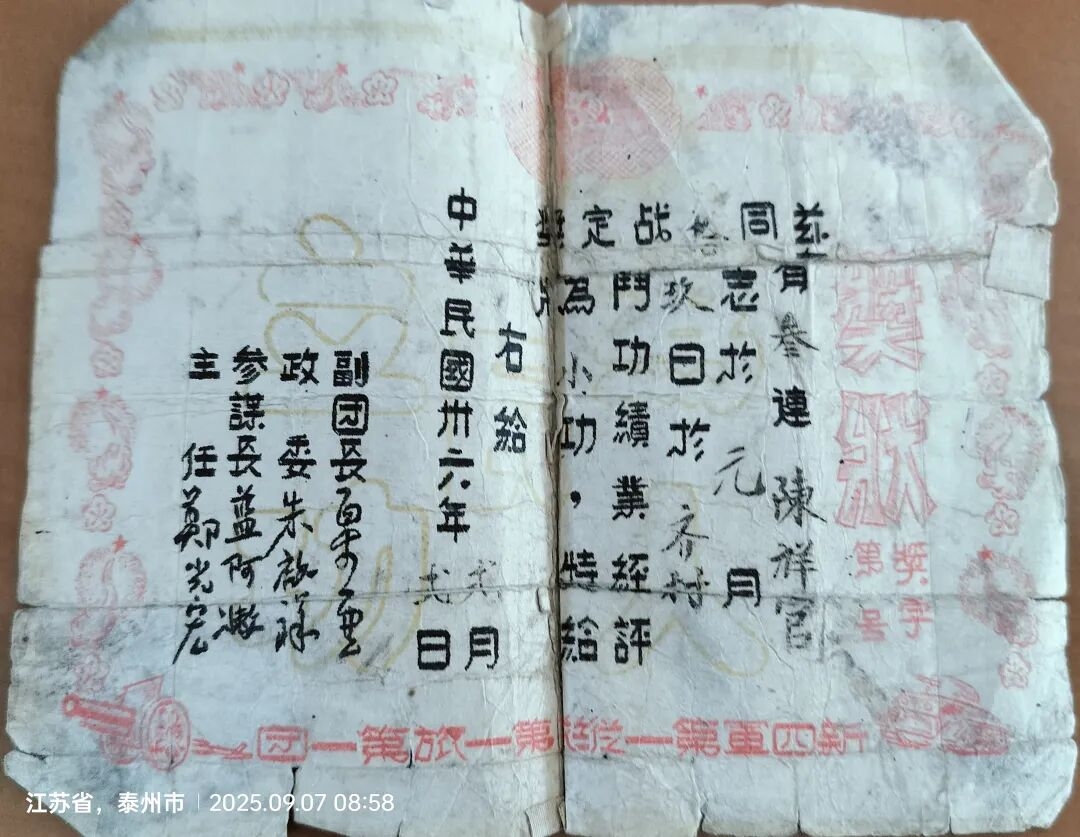 獎狀
獎字
第 号
茲有叁連陳祥官
同志於元月
玖日於齐村
战鬥功績業经評
定為小功，特給
獎
右給
中華民國卅六年
弍月
弍日
副团長
政委朱啟祥
参謀長蓝阿嫩
主任鄭光宏
新四軍第一縱第一旅第一团
江苏省，泰州市 | 2025.09.07 08:58